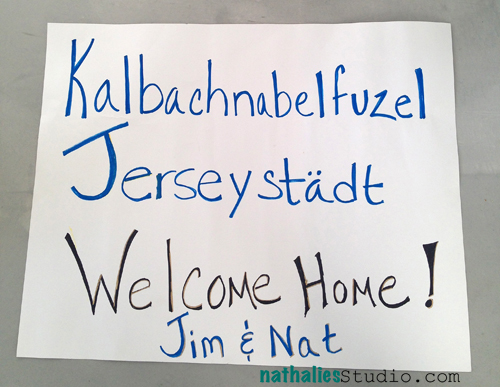 Kalbachnabelfuzel
Jerseystädt
Welcome Home!
Jim & Nat
nathaliesStudio.com